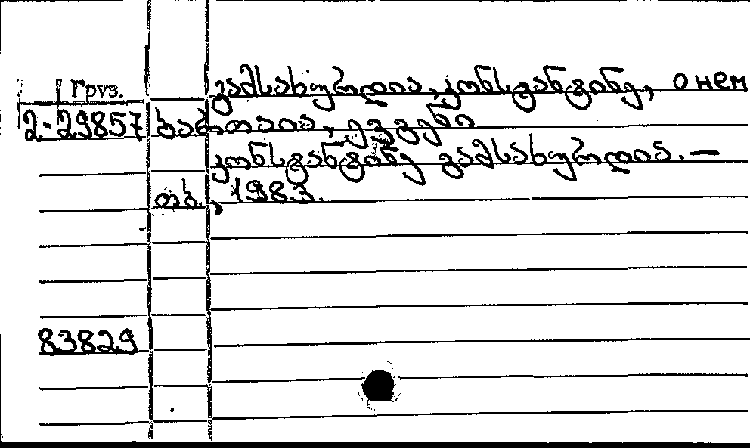 გამსახურდია, კონსტანტინე, о нем
Груз.
2-29857 ბართაია, ევგენი
კონსტანტინე გამსახურდია. —
თბ., 1983.
83829